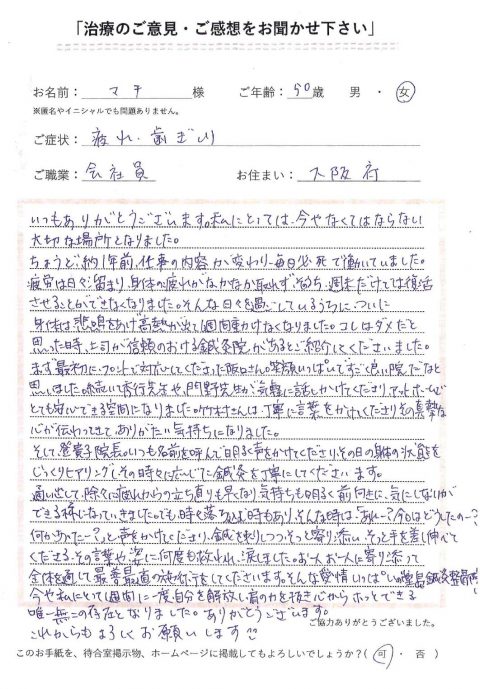 「治療のご意見・ご感想をお聞かせ下さい」
お名前： マチ 様 ご年齢：50歳 男 ・ 女
※匿名やイニシャルでも問題ありません。
ご症状： 疲れ・歯ぎしり
ご職業： 会社員 お住まい： 大阪府
いつもありがとうございます。私にとっては、今やなくてはならない
大切な場所となりました。
ちょうど約1年前、仕事の内容が変わり、毎日必死で働いていました。
疲労は日々溜まり、身体の疲れがなかなか取れず、週末だけでは復活
させることができなくなりました。そんな日々を過ごしているうちに、ついに
身体は悲鳴をあげ高熱が出し1週間動けなくなりました。コレはダメだと
思った時、上司が信頼のおける鍼灸院があるとご紹介してくださいました。
まず最初にフロントで対応してくださった飯田さん。笑顔いっぱいですごく良い院だなと
思いました。続いて先生や、門野先生が気軽に話しかけてくださり、アットホームで
とても安心できる空間になりました。竹木さんは、丁寧に言葉をかけてくださりその真摯な
心が伝わってきてありがたい気持ちになりました。
そして、登貴子院長。いつも名前を呼んで明るく声をかけてくださり、その日の身体の状態を
じっくりヒアリングし、その時々に応じた鍼灸を丁寧にしてくださいます。
通い出して、除々に疲れからの立ち直りも早くなり、気持ちも明るく前向きに、気にしない
できる様になっていきました。でも時々落ち込む時もあり、そんな時は「あれ～？今日はどうしたの～？
何かあった～？」と声をかけてくださり、鍼を刺しつつそっと寄り添い、そっと手を差し伸べて
くださる。その言葉や、姿に何度も救われ、涙しました。お一人お一人に寄り添って
全体を通して最善最良の施術をしてくださいます。そんな愛情いっぱいの堂島鍼灸整骨院
今や私にとって1週間に一度、自分を解放し、肩の力を抜き心からホッとできる
唯一無二の存在となりました。ありがとうございます。
これからもよろしくお願いします
ご協力ありがとうございました。
このお手紙を、待合室掲示物、ホームページに掲載してもよろしいでしょうか？（ 可 ・ 否 ）